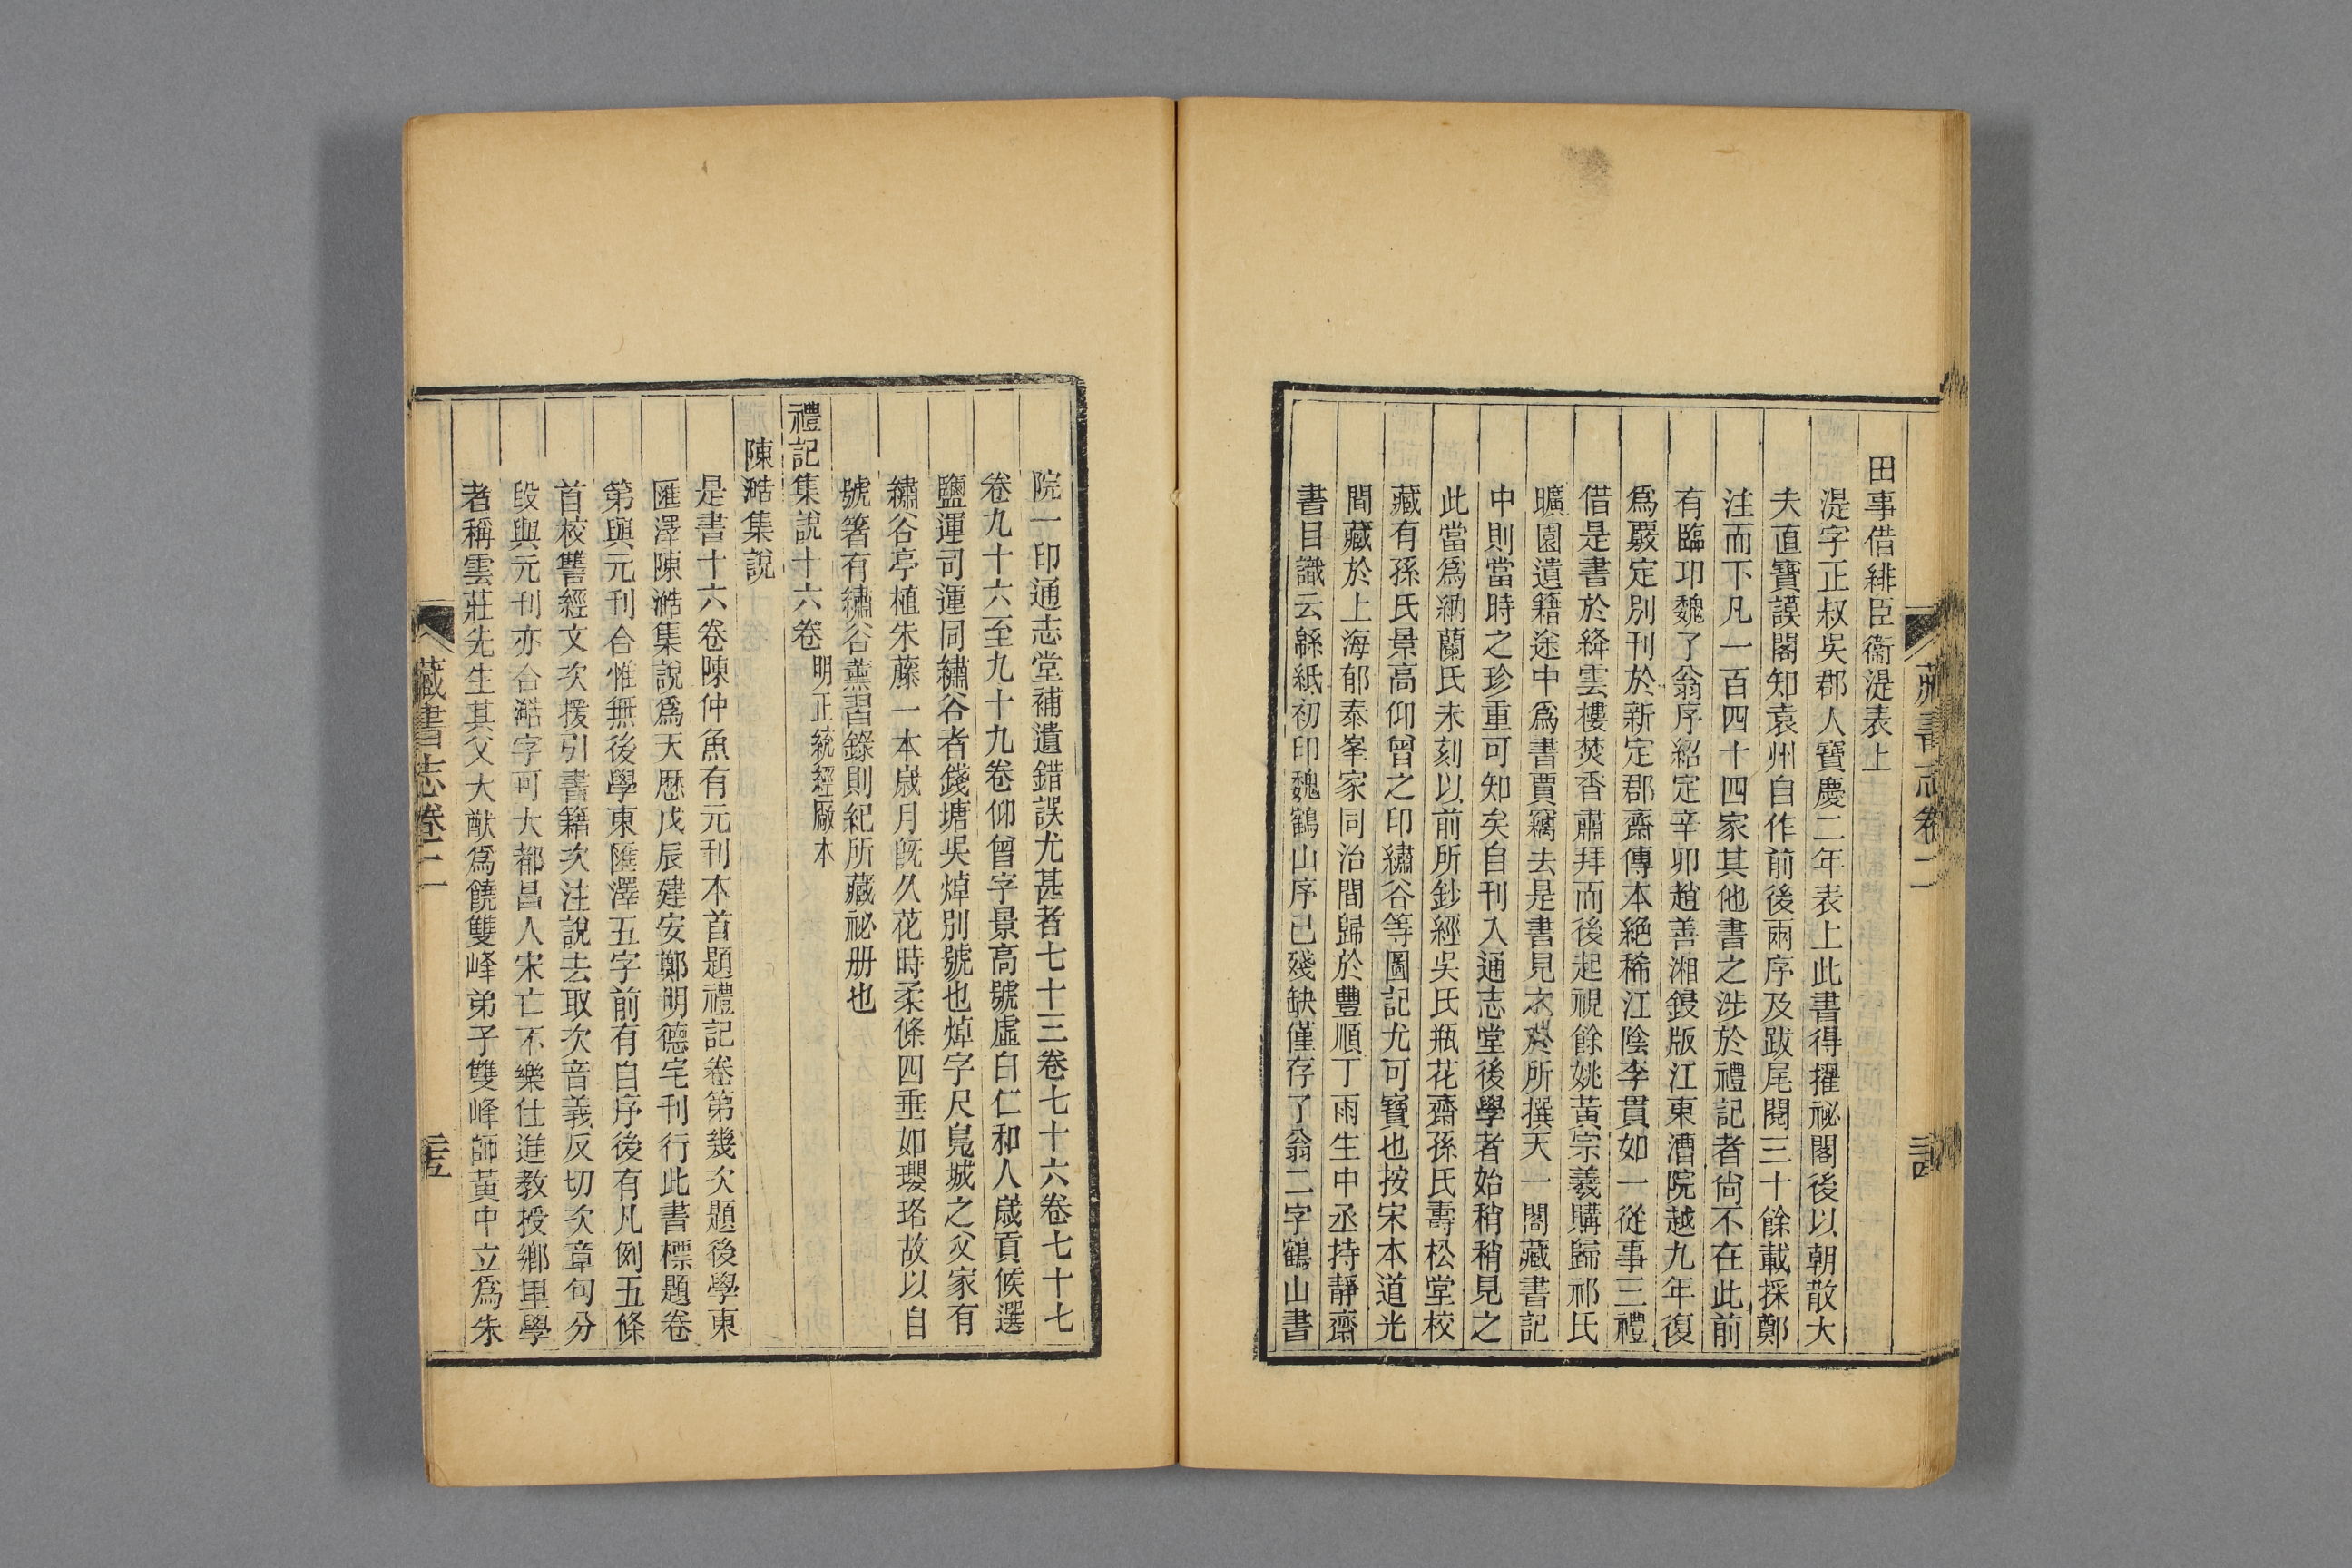 田事借緋臣衞湜表上
湜字正叔吳郡人寶慶二年表上此書得擢祕閣後以朝散大
夫直寶謨閣知袁州自作前後兩序及跋尾閱三十餘載採鄭
注而下凡一百四十四家其他書之涉於禮記者尙不在此前
有臨卭魏了翁序紹定辛卯趙善湘鋟版江東漕院越九年復
爲覈定別刊於新定郡齋傳本絶稀江陰李貫如一從事三禮
借是書於絳雲樓焚香肅拜而後起視餘姚黃宗羲購歸祁氏
曠園遺籍途中爲書賈竊去是書見於所撰天一閣藏書記
中則當時之珍重可知矣自刊入通志堂後學者始稍稍見之
此當爲納蘭氏未刻以前所鈔經吳氏瓶花齋孫氏壽松堂校
藏有孫氏景高仰曾之印繡谷等圖記尤可寶也按宋本道光
間藏於上海郁泰峯家同治間歸於豐順丁雨生中丞持靜齋
書目識云緜紙初印魏鶴山序已殘缺僅存了翁二字鶴山書
藏書志卷二
院一印通志堂補遺錯誤尤甚者七十三卷七十六卷七十七
卷九十六至九十九卷仰曾字景高號虛白仁和人歲貢候選
鹽運司運同繡谷者錢塘吳焯別號也焯字尺鳧城之父家有
繡谷亭植朱藤一本歲月旣久花時柔條四垂如瓔珞故以自
號箸有繡谷薰習錄則紀所藏祕册也
禮記集說十六卷 明正統經廠本
陳澔集說
是書十六卷陳仲魚有元刊本首題禮記卷第幾次題後學東
匯澤陳澔集說爲天歷戊辰建安鄭明德宅刊行此書標題卷
第與元刊合惟無後學東匯澤五字前有自序後有凡例五條
首校讐經文次援引書籍次注說去取次音義反切次章句分
段與元刊亦合澔字可大都昌人宋亡不樂仕進教授鄉里學
者稱雲莊先生其父大猷爲饒雙峰弟子雙峰師黃中立爲朱
藏書志卷二